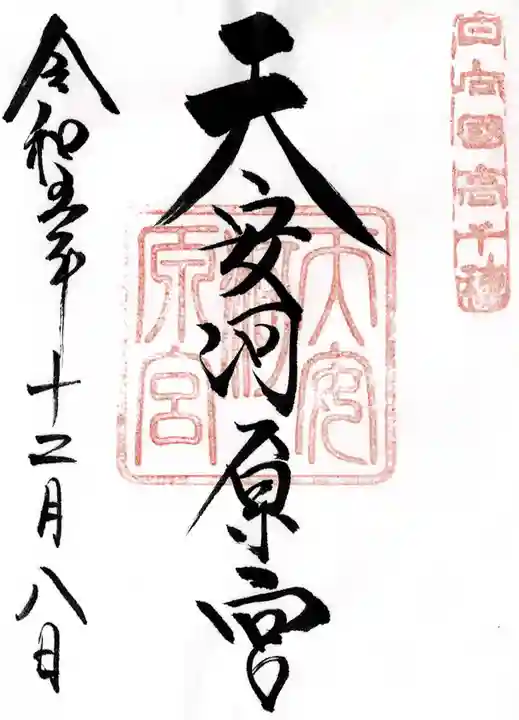 日向国高千穂
天安河原宮
天安
河
原宮
令和五年十二月八日